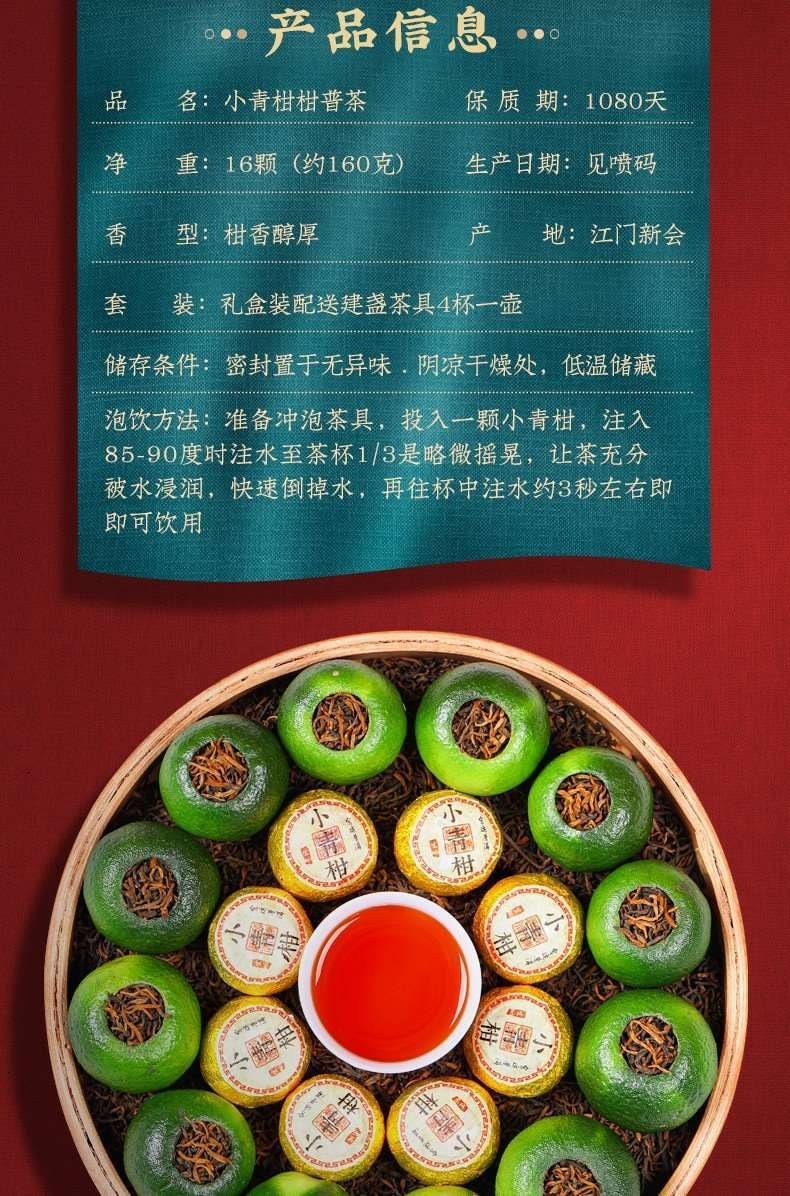 产品信息
品 名：小青柑柑普茶 保质期：1080天
净 重：16颗（约160克） 生产日期：见喷码
香 型：柑香醇厚 产 地：江门新会
套 装：礼盒装配送建盏茶具4杯一壶
储存条件：密封置于无异味．阴凉干燥处，低温储藏
泡饮方法：准备冲泡茶具，投入一颗小青柑，注入
85-90度时注水至茶杯1/3是略微摇晃，让茶充分
被水浸润，快速倒掉水，再往杯中注水约3秒左右即
即可饮用
小青柑
小青柑
小青柑
小青柑
小青柑
小青柑
小青柑
小青柑